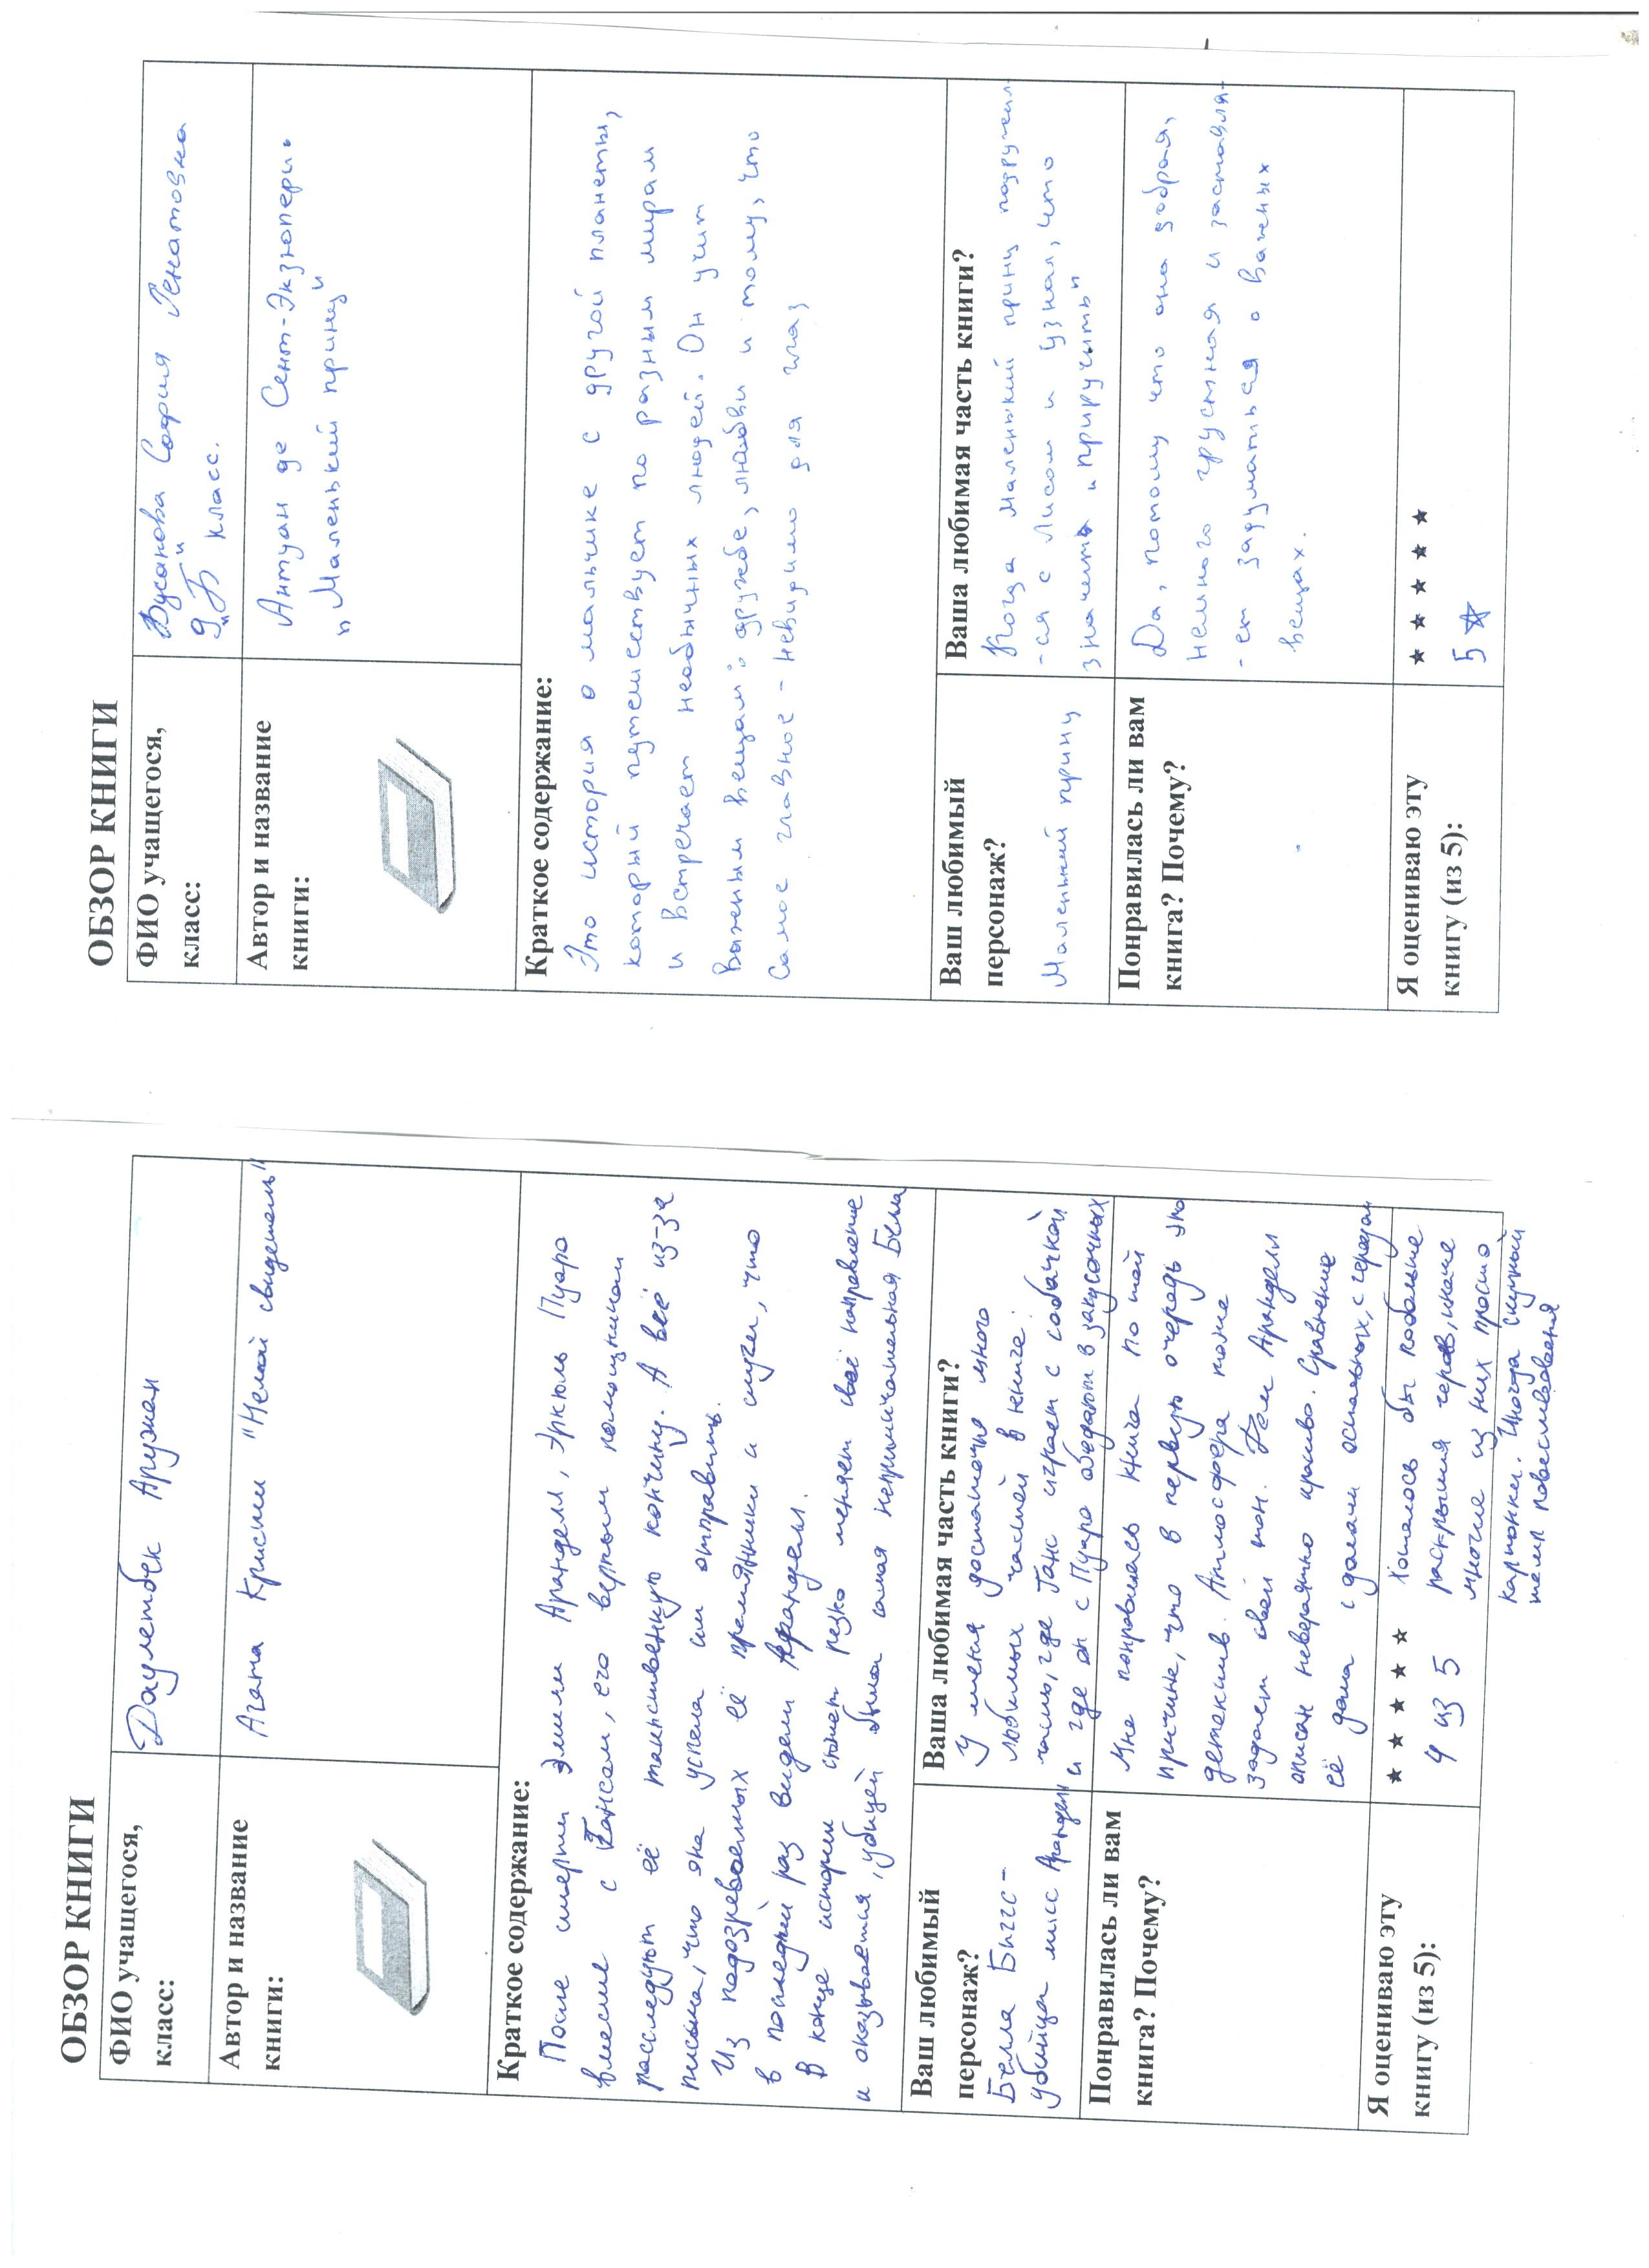 ОБЗОР КНИГИ
ФИО учащегося,
класс:
Даулетбек Аружан
Автор и название
книги:
Агата Кристи "Немой свидетель"
Краткое содержание:
После смерти Эмили Аранделл, Эркюль Пуаро
вместе с Гансом, его верным помощником
расследуют её таинственную кончину. А всё из-за
письма, что она успела им отправить.
Из подозреваемых её племянники и слуги, что
в последний раз видели Аранделл.
В конце истории сюжет резко меняет своё направление
и оказывается, убийцей была самая непримечательная Белла
Ваш любимый
персонаж?
Белла Биггс -
убийца мисс Аранделл
Ваша любимая часть книги?
У меня достаточно много
любимых частей в книге:
часть, где Ганс играет с собачкой
и где он с Пуаро обедают в закусочных
Понравилась ли вам
книга? Почему?
Мне понравилась книга по той
причине, что в первую очередь это
детектив. Атмосфера тоже
задаёт свой тон. Дом Аранделл
описан невероятно красиво. Сравнение
её дома с домами остальных, с городом
Я оцениваю эту
книгу (из 5):
★ ★ ★ ★ ★
4 из 5
Хотелось бы побольше
раскрытия героев, иначе
многие из них просто
картонки. Иногда скучный
темп повествования
ОБЗОР КНИГИ
ФИО учащегося,
класс:
София Ренатовна
9 "Б" класс.
Автор и название
книги:
Антуан де Сент-Экзюпери.
"Маленький принц"
Краткое содержание:
Это история о мальчике с другой планеты,
который путешествует по разным мирам
и встречает необычных людей. Он учит
важным вещам: дружбе, любви и тому, что
самое главное - невидимо для глаз
Ваш любимый
персонаж?
Маленький принц
Ваша любимая часть книги?
Когда Маленький принц подружил-
-ся с Лисом и узнал, что
значить "приручить"
Понравилась ли вам
книга? Почему?
Да, потому что она добрая,
немного грустная и заставля-
-ет задуматься о важных
вещах.
Я оцениваю эту
книгу (из 5):
★ ★ ★ ★ ★
5 ☆